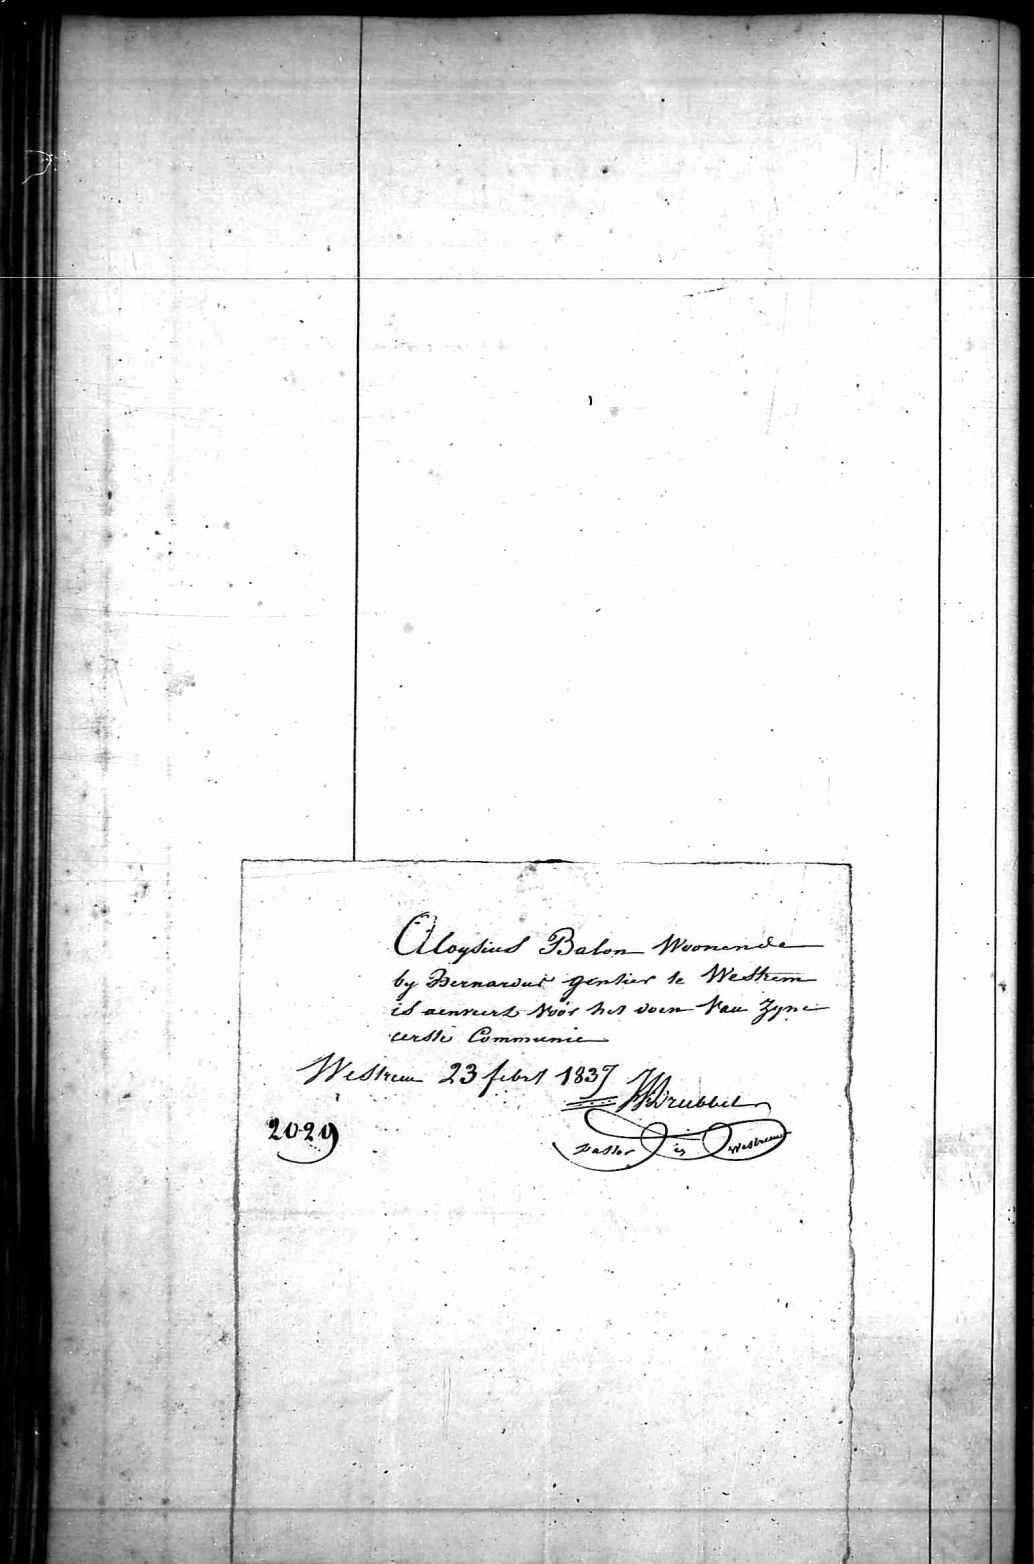 Aloysius Balon Woonende
by Bernardus gentier te Westrem
is aenveert voor het doen van zyne
eerste Communie
Westrem 23 febry 1837
Pastor in Westrem
2029